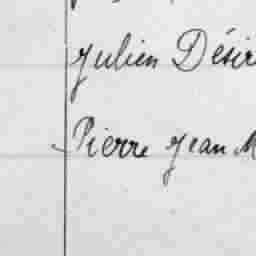 Julien Désir
Pierre Jean M